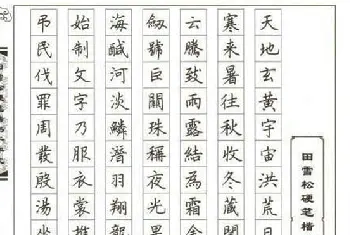 田雪松硬笔楷
天地玄黄宇宙洪荒日
寒来暑往秋收冬藏閏
云騰致雨露結為霜金
劔號巨闕珠稱夜光果
海醎河淡鱗潛羽翔龍
始制文字乃服衣裳推
弔民伐罪周發殷湯坐